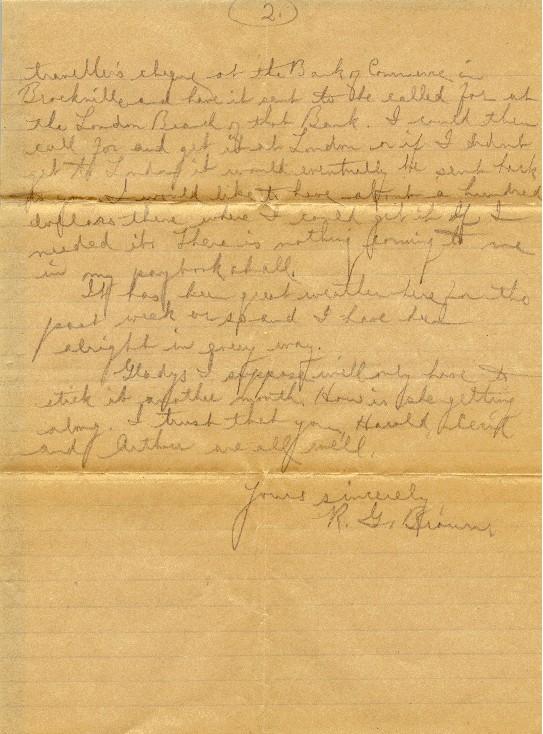 2.
traveller's cheque at the Bank of Commerce in
Brockville and have it sent to be called for at
the London Branch of that Bank. I could then
call for and get it at London or if I didn't
get to London it would eventually be sent back
to you. I would like to have about a hundred
dollars there where I could get it if I
needed it. There is nothing coming to me
in my paybook at all.
It has been great weather here for the
past week or so and I have been
alright in every way.
Gladys I suppose will only have to
stick it another month. How is she getting
along. I trust that you, Harold,
and Arthur are all well.
Yours sincerely
R. G. Browne